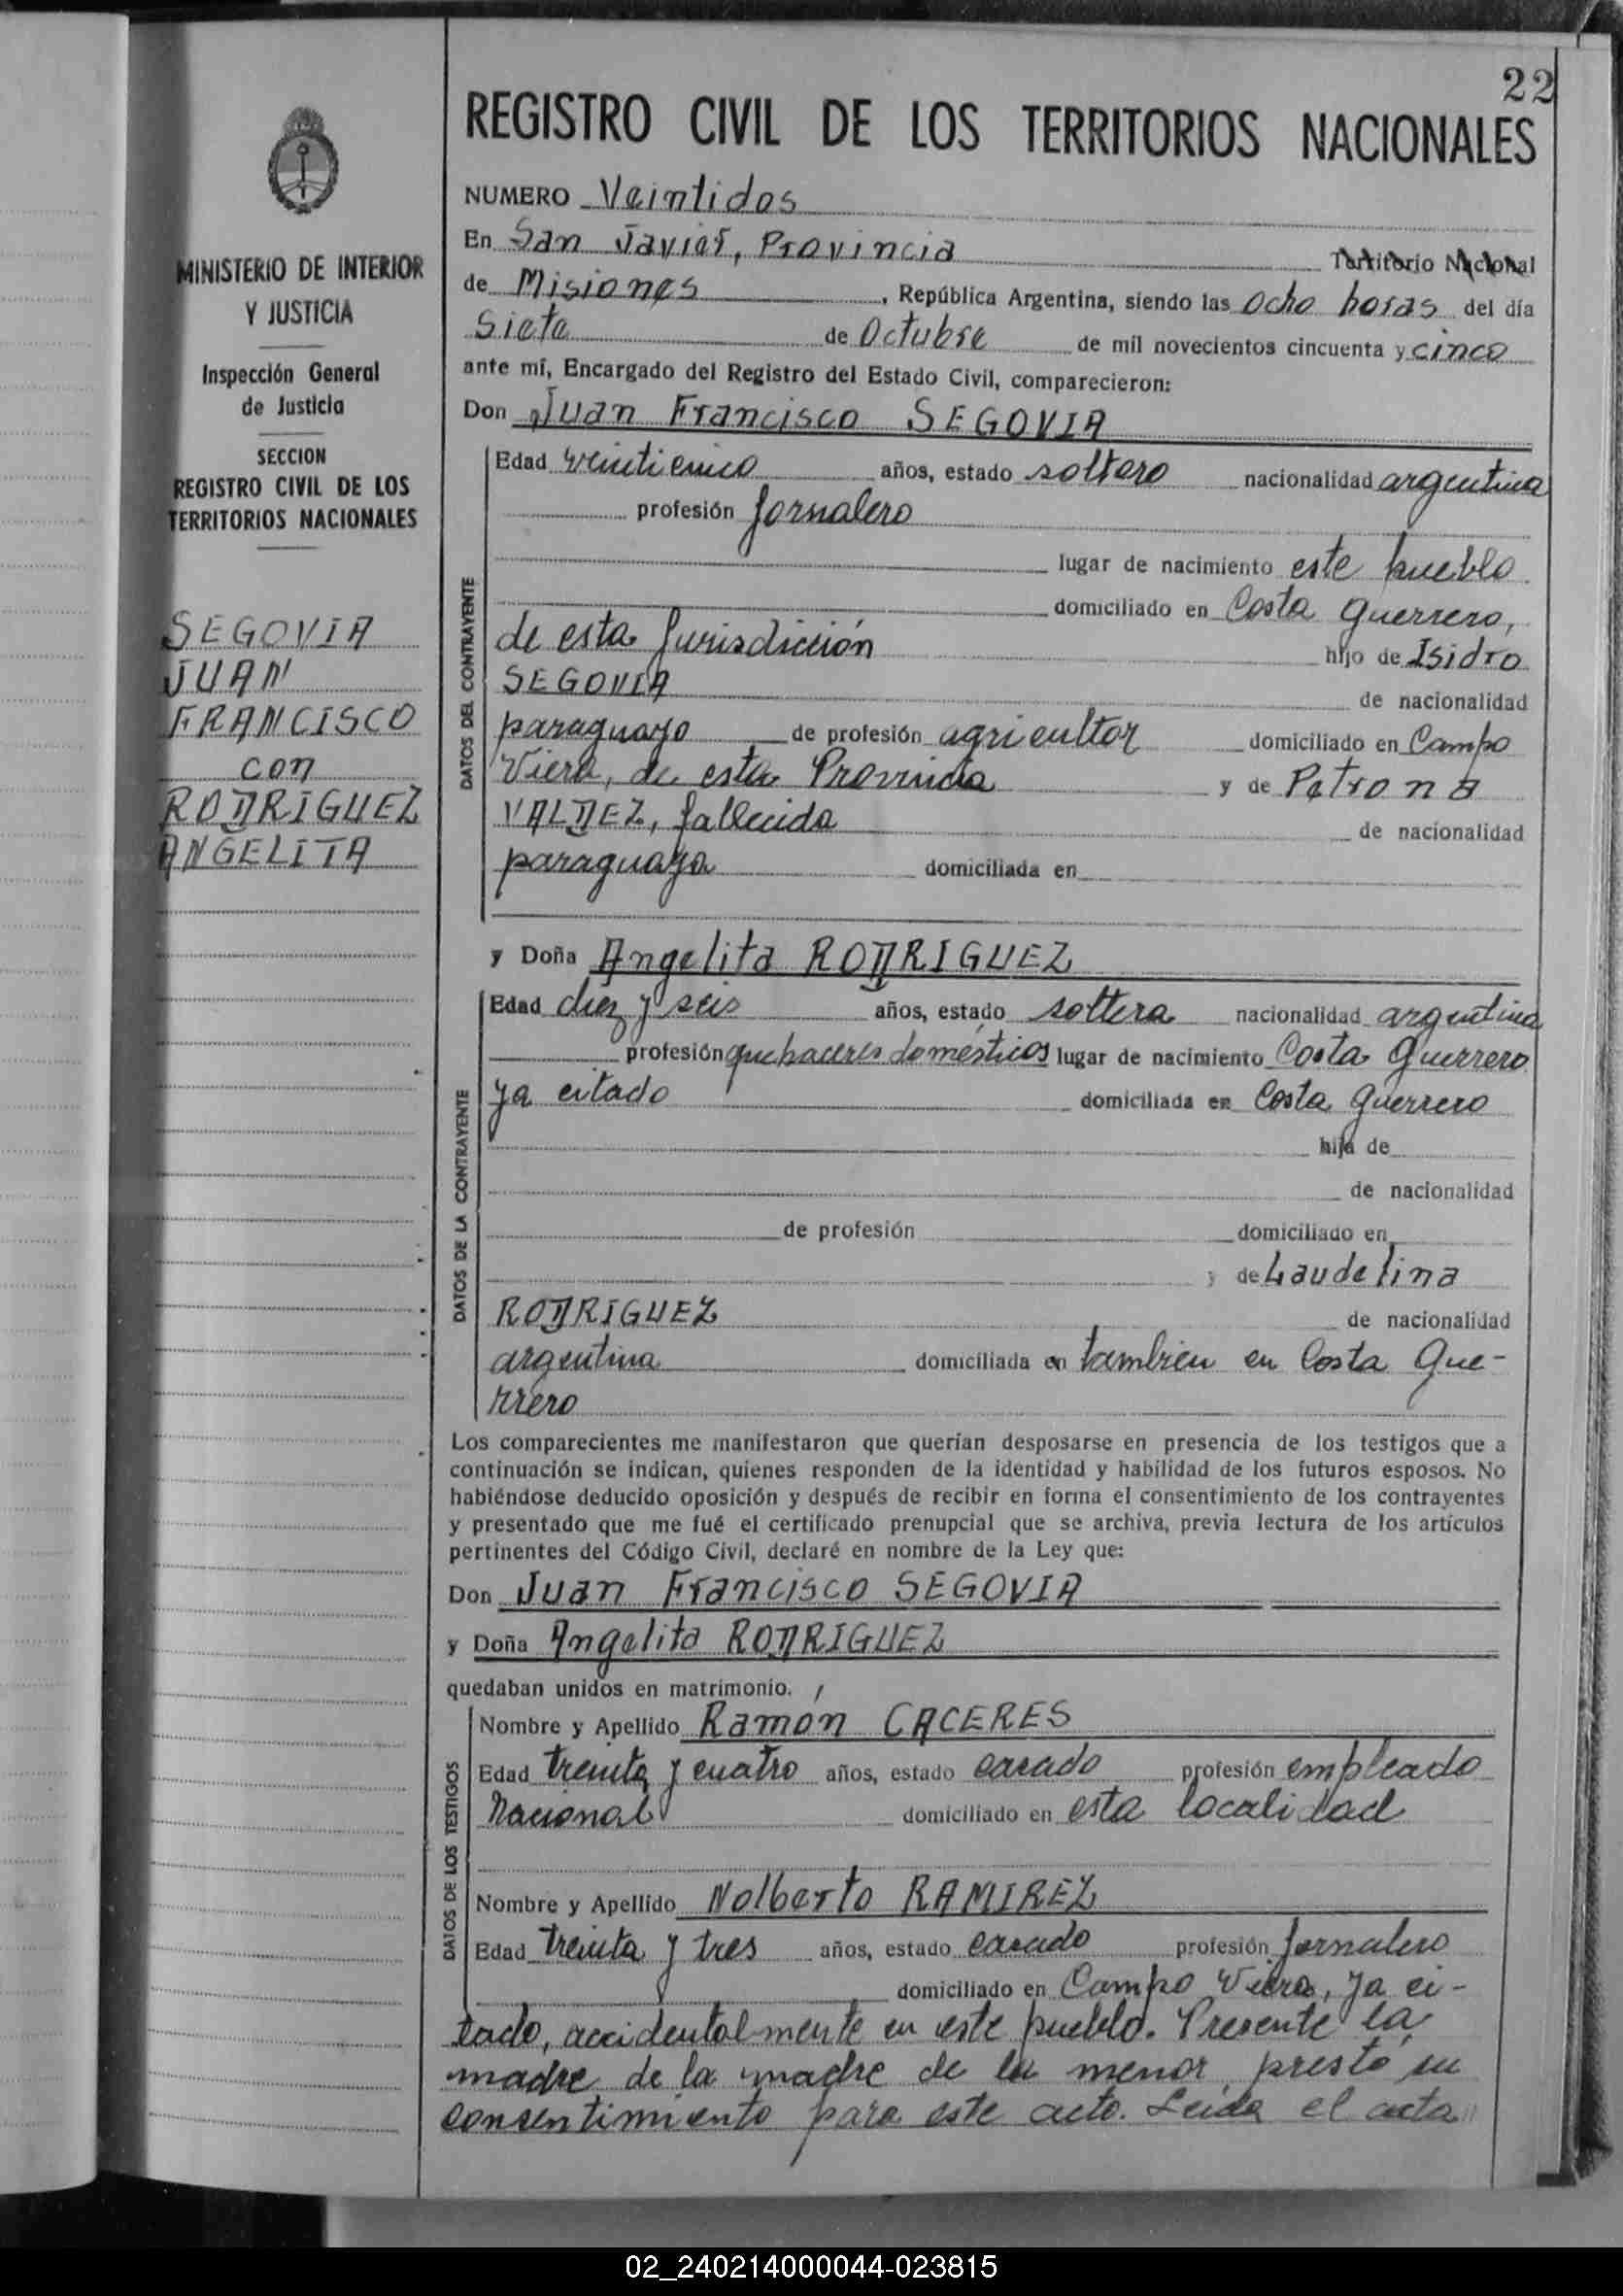 22
REGISTRO CIVIL DE LOS TERRITORIOS NACIONALES
MINISTERIO DE INTERIOR
Y JUSTICIA
Inspección General
de Justicia
SECCION
REGISTRO CIVIL DE LOS
TERRITORIOS NACIONALES
SEGOVIA
JUAN
FRANCISCO
con
RODRIGUEZ
ANGELITA
NUMERO Veintidos
En San Javier, Provincia Territorio Nacional
de Misiones, República Argentina, siendo las Ocho horas del día
Siete de Octubre de mil novecientos cincuenta y cinco
ante mí, Encargado del Registro del Estado Civil, comparecieron:
Don Juan Francisco SEGOVIA
DATOS DEL CONTRAYENTE
Edad veinticinco años, estado soltero nacionalidad argentina
profesión Jornalero
lugar de nacimiento este pueblo
domiciliado en Costa Guerrero,
de esta Jurisdicción hijo de Isidro
SEGOVIA de nacionalidad
paraguayo de profesión agricultor domiciliado en Campo
Viera, de esta Provincia y de Petrona
VALDEZ, fallecida de nacionalidad
paraguaya domiciliada en
y Doña Angelita RODRIGUEZ
DATOS DE LA CONTRAYENTE
Edad diez y seis años, estado soltera nacionalidad argentina
profesión quehaceres domésticos lugar de nacimiento Costa Guerrero
ya citado domiciliada en Costa Guerrero
hija de
de nacionalidad
de profesión domiciliado en
y de Laudelina
RODRIGUEZ de nacionalidad
argentina domiciliada en tambien en Costa Gue-
rrero
Los comparecientes me manifestaron que querían desposarse en presencia de los testigos que a
continuación se indican, quienes responden de la identidad y habilidad de los futuros esposos. No
habiéndose deducido oposición y después de recibir en forma el consentimiento de los contrayentes
y presentado que me fué el certificado prenupcial que se archiva, previa lectura de los artículos
pertinentes del Código Civil, declaré en nombre de la Ley que:
Don Juan Francisco SEGOVIA
y Doña Angelita RODRIGUEZ
quedaban unidos en matrimonio.
DATOS DE LOS TESTIGOS
Nombre y Apellido Ramon CACERES
Edad treinta y cuatro años, estado casado profesión empleado
Nacional domiciliado en esta localidad
Nombre y Apellido Nolberto RAMIREZ
Edad treinta y tres años, estado casado profesión Jornalero
domiciliado en Campo Viera, ya ci-
tado, accidentalmente en este pueblo. Presente la
madre de la madre de la menor, prestó su
consentimiento para este acto. Leida el acta
02_240214000044-023815